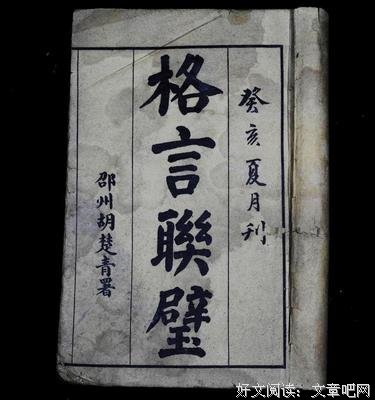 癸亥夏月刊
格言聯璧
邵州胡楚青署
好文阅读：文章吧网